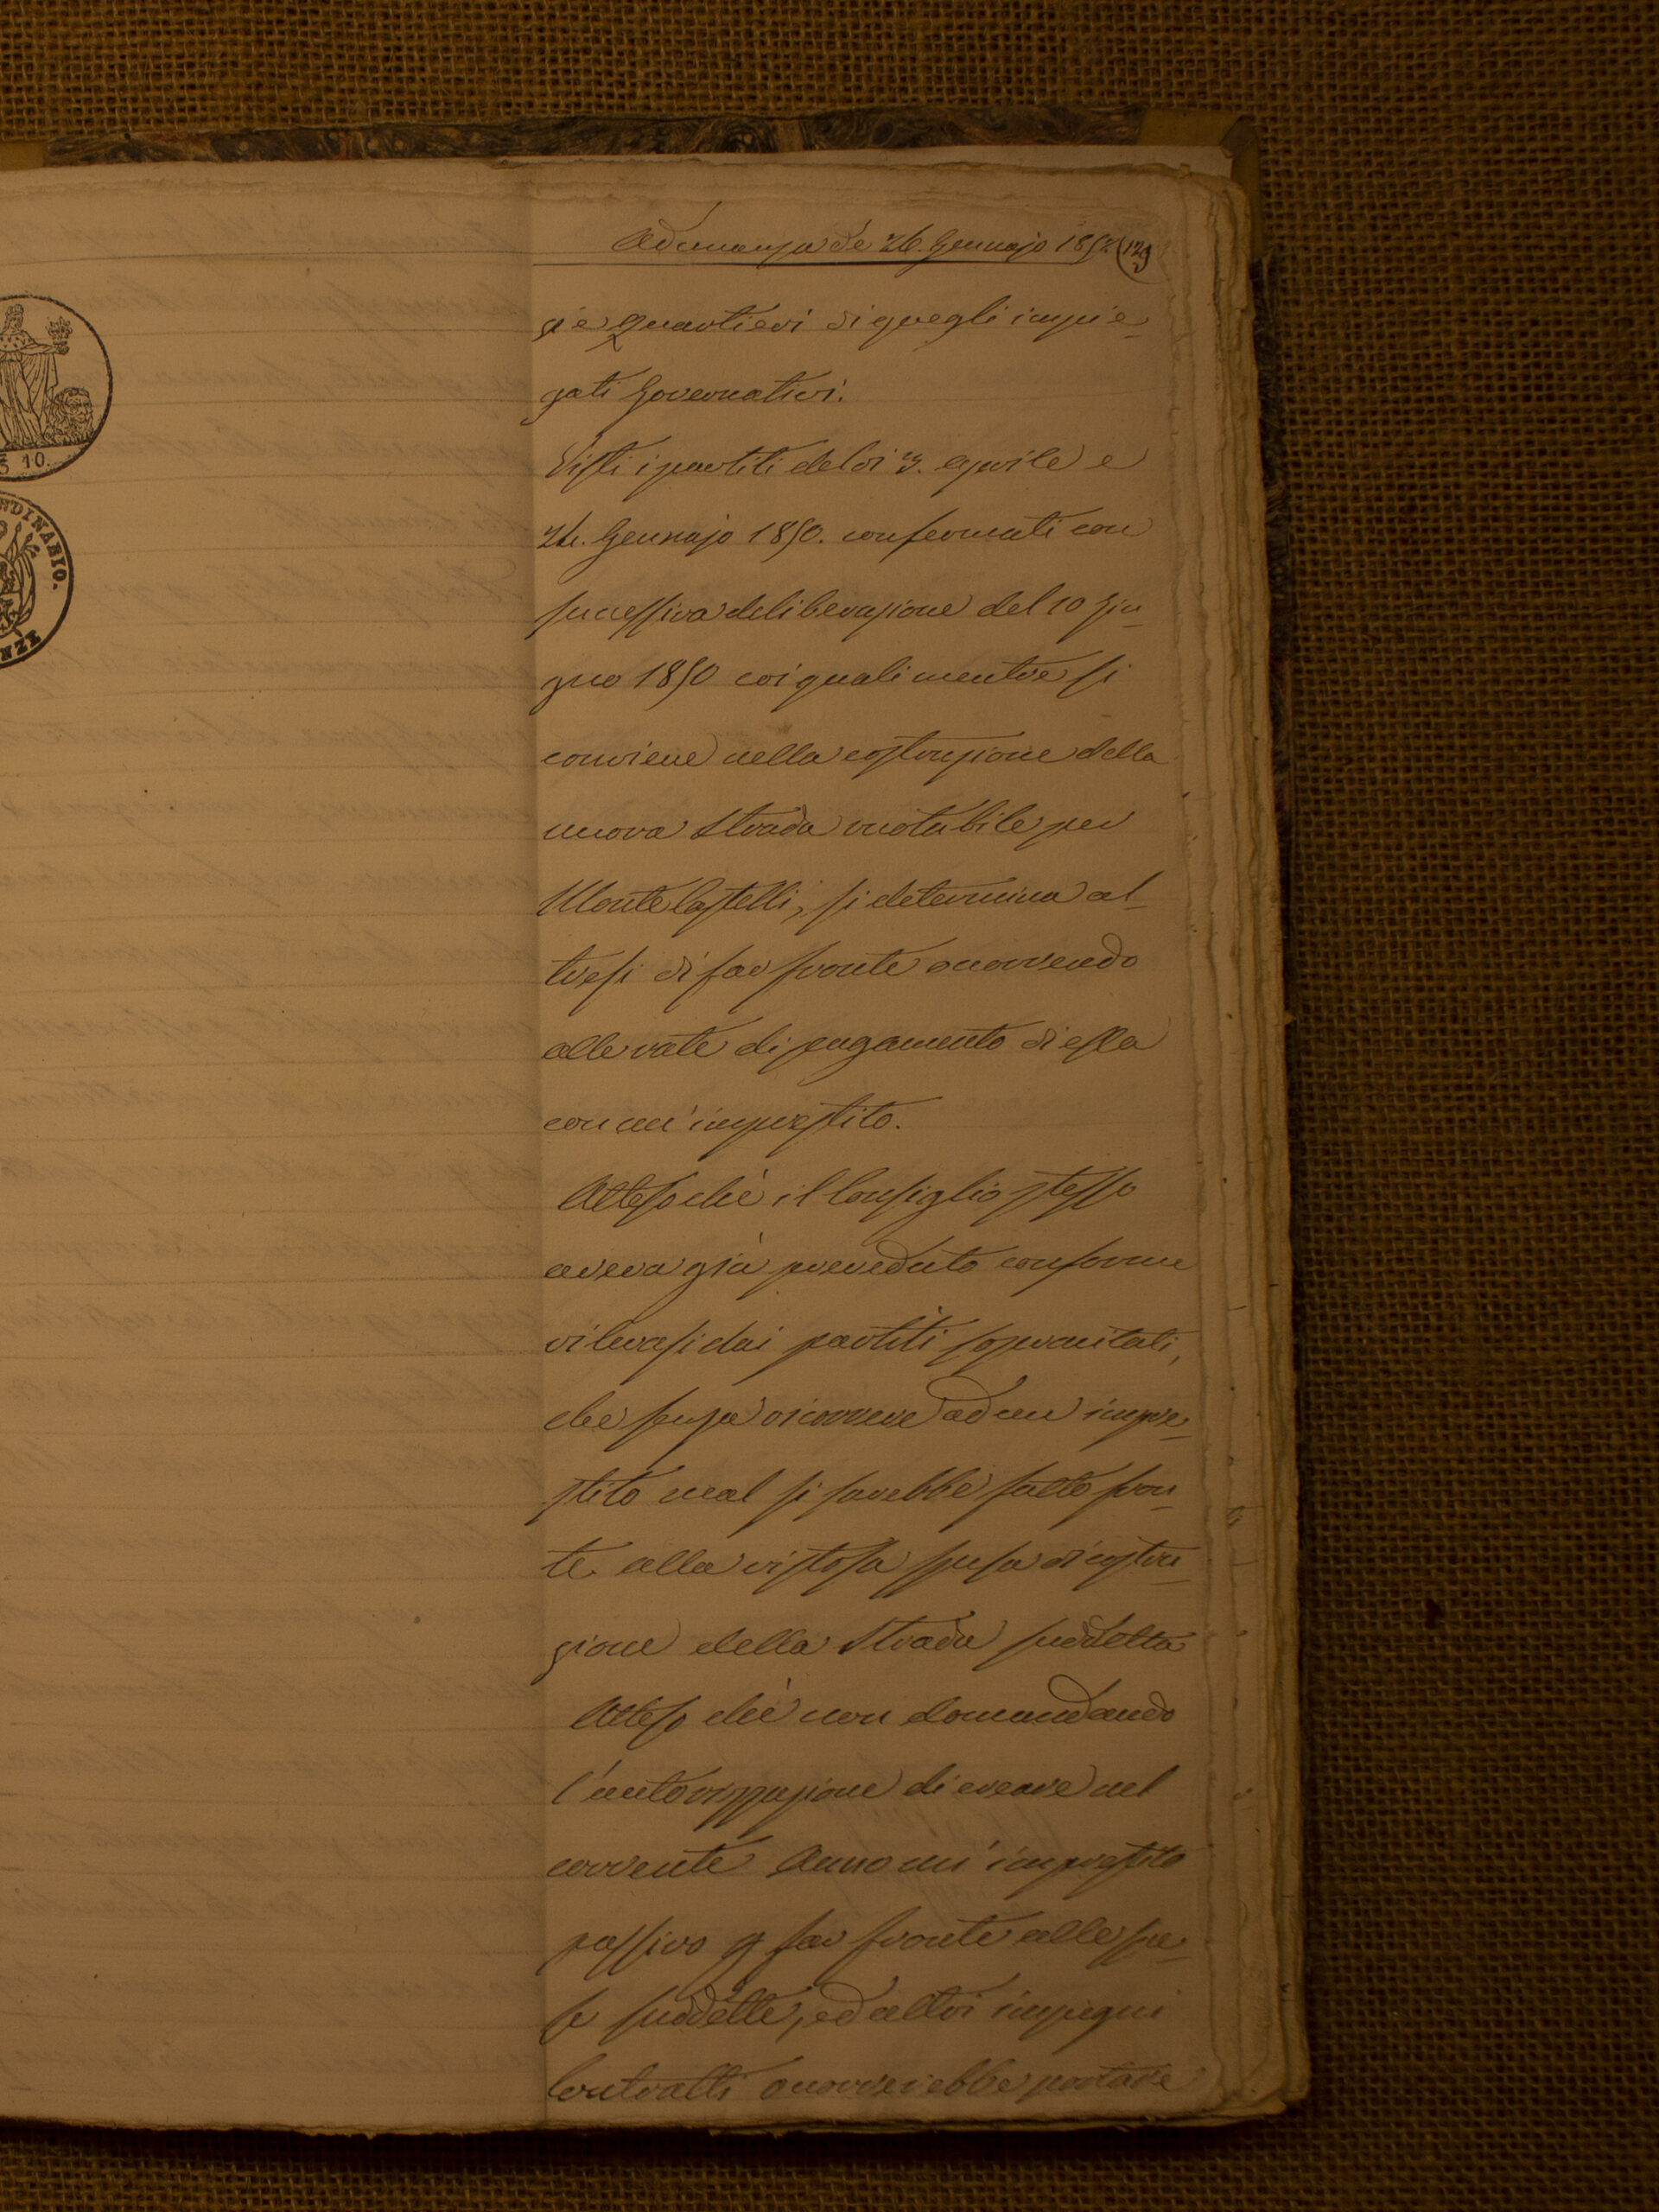 Adunanza de 26. Gennajo 1852 (129
gie quartieri di quegli impie_
gati Governativi.
Visti i partiti del di 3. aprile e
24. Gennajo 1850. confermati con
successiva deliberazione del 10 giu_
gno 1850 coi quali mentre si
conviene nella costruzione della
nuova Strada ruotabile per
Monte Castelli, si determina al_
tresi di far fronte occorrendo
alle rate di pagamento di essa
con un' imprestito.
Atteso chè il Consiglio stesso
aveva già preveduto conforme
rilevasi dai partiti sopracitati,
che senza ricorrere ad un impre_
stito mal si sarebbe fatto fron_
te alla vistosa spesa di costru_
zione della Strada suddetta
Atteso chè non domandando
l'autorizzazione di creare nel
corrente Anno un' imprestito
passivo p far fronte alle spe_
se suddette, ed altri impegni
Contratti occorrerebbe portare
5 10.
NDINARIO.
NZE